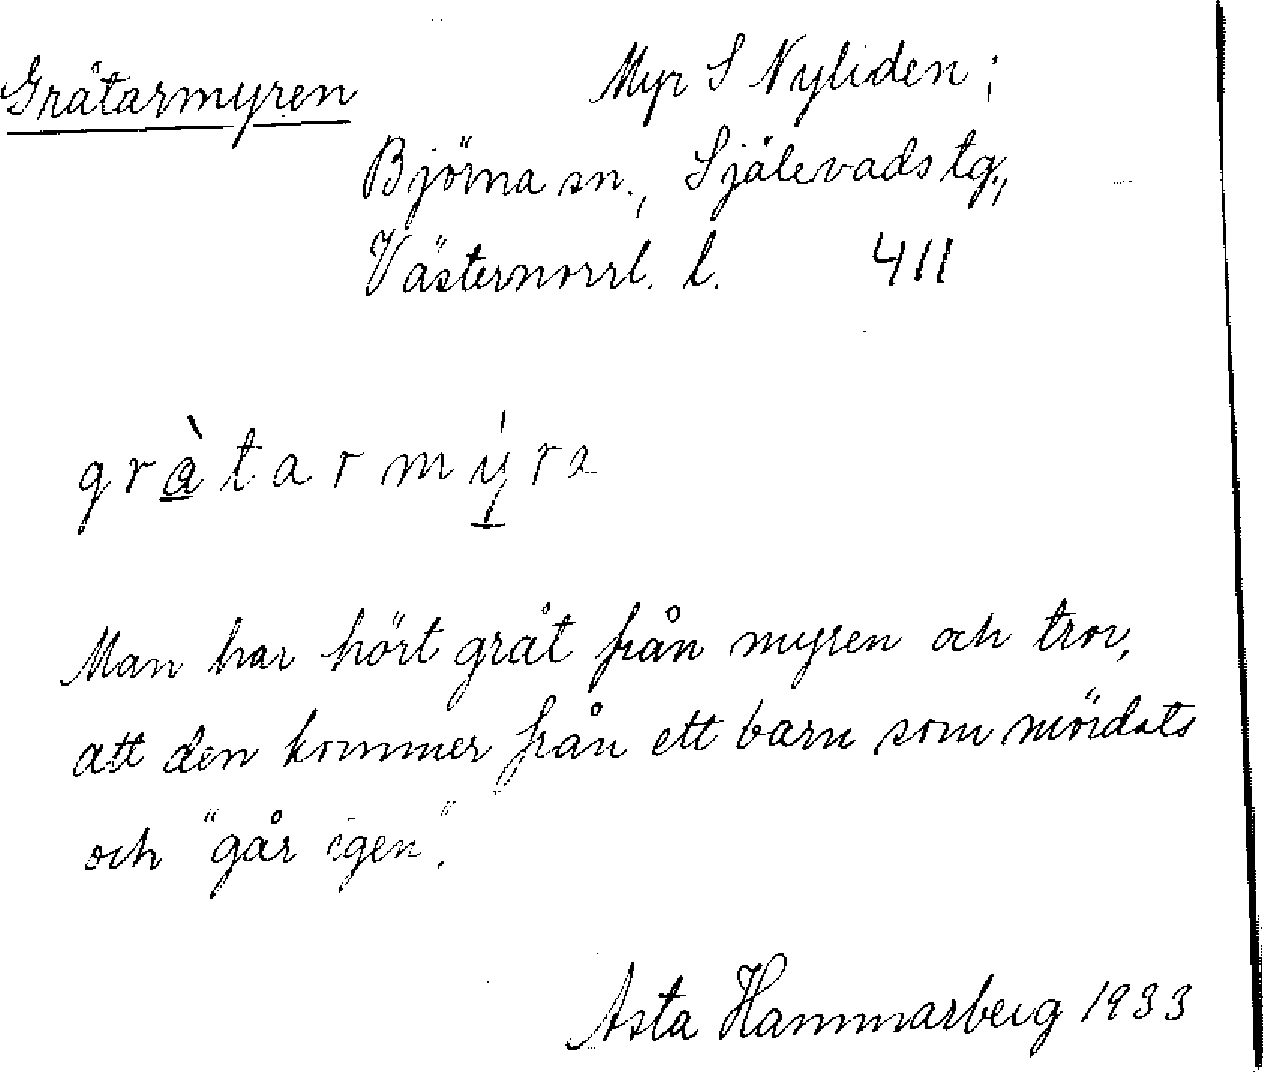 Gråtarmyren Myr S Nyliden i
Björna sn., Själevads tg.,
Västernorrl. l. 411
gràtarmýra
Man har hört gråt från myren och tror,
att den kommer från ett barn som mördats
och "går igen".
Asta Hammarberg 1933